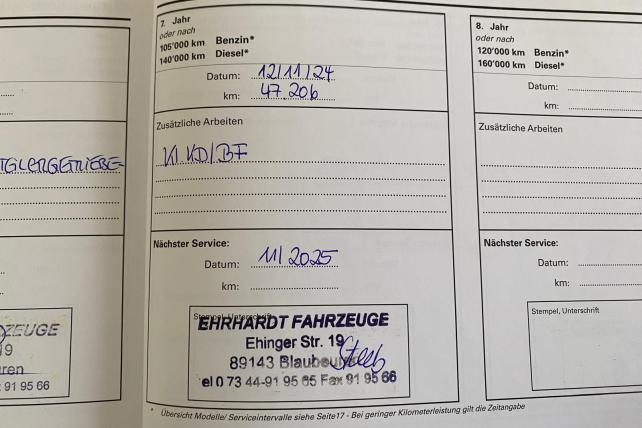 TEILERGETRIEBE-
ZEUGE
19
ren
91 95 66
7. Jahr
oder nach
105'000 km Benzin*
140'000 km Diesel*
Datum: 12/11/24
km: 47.206
Zusätzliche Arbeiten
KD/BF
Nächster Service:
Datum: 11/2025
km:
Stempel, Unterschrift
EHRHARDT FAHRZEUGE
Ehinger Str. 19
89143 Blaubeuren
el 0 73 44-91 95 65 Fax 91 95 66
* Übersicht Modelle/ Serviceintervalle siehe Seite17 - Bei geringer Kilometerleistung gilt die Zeitangabe
8. Jahr
oder nach
120'000 km Benzin*
160'000 km Diesel*
Datum:
km:
Zusätzliche Arbeiten
Nächster Service:
Datum:
km:
Stempel, Unterschrift